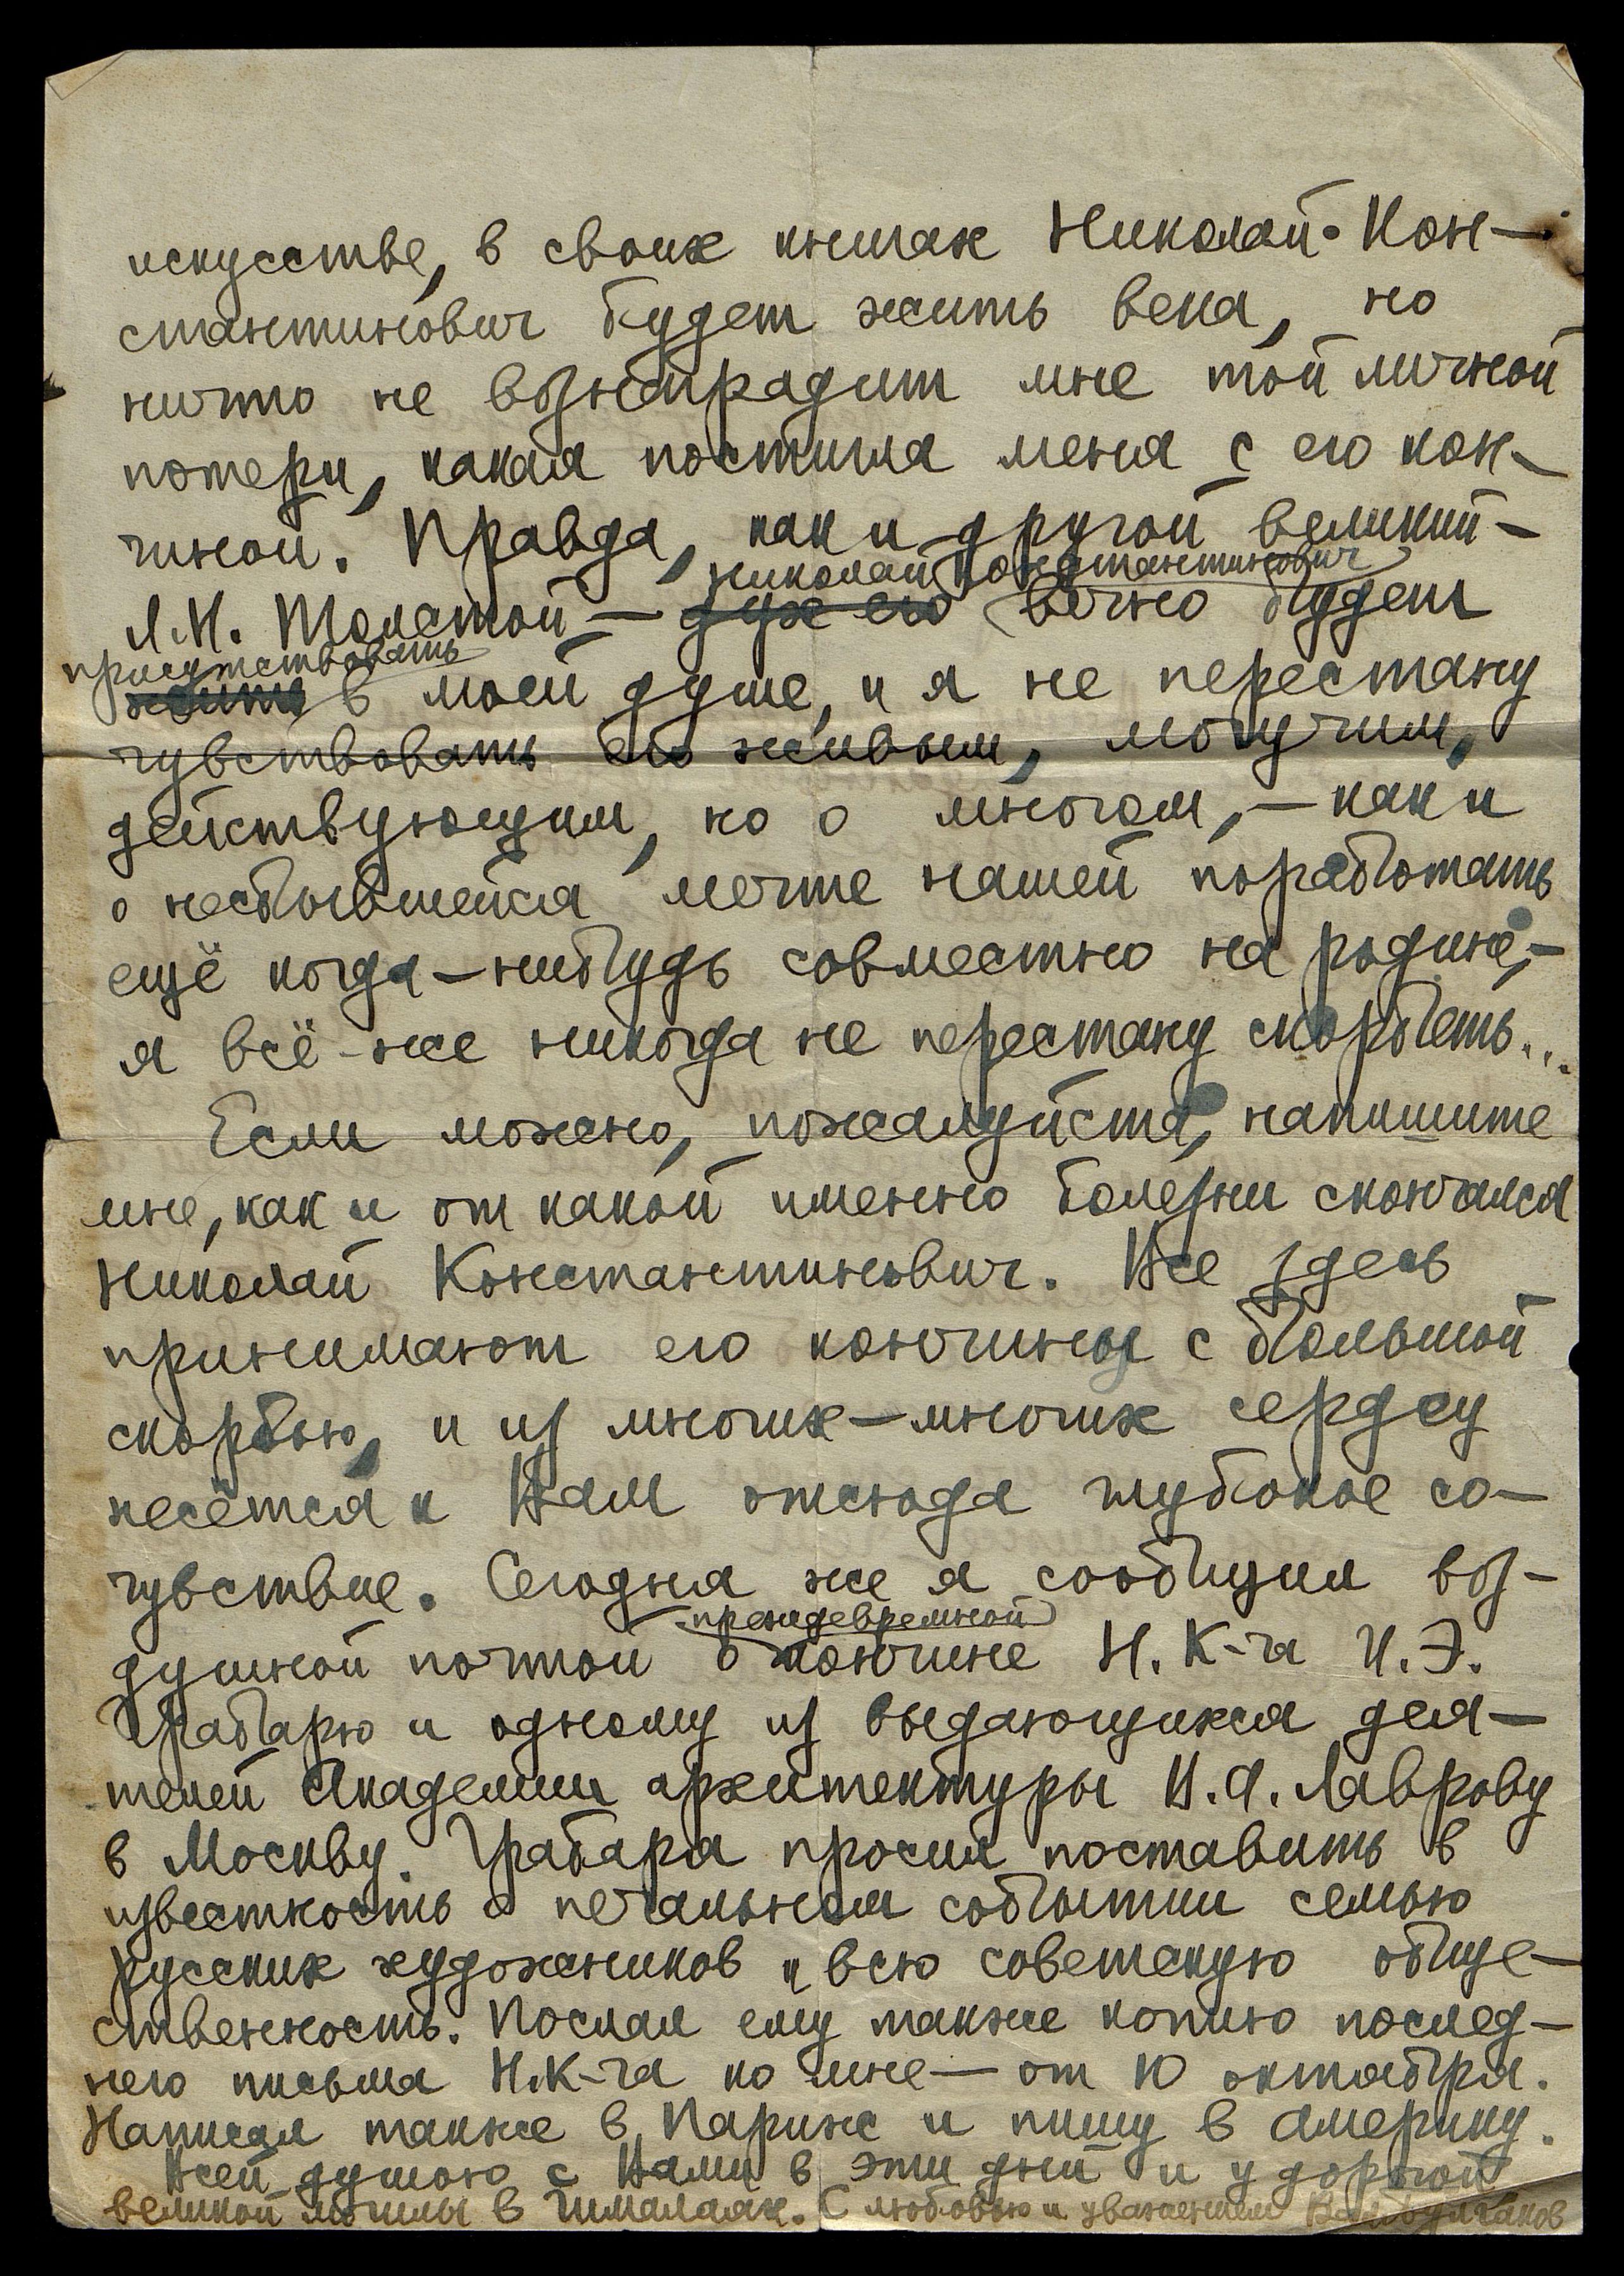 искусстве, в своих книгах Николай Кон-
стантинович будет жить века, но
ничто не вознаградит мне той личной
потери, какая постигла меня с его кон-
чиной. Правда, как и другой великий –
Николай Константинович
Л.Н. Толстой – дух его вечно будет
присутствовать
жить в моей душе, и я не перестану
чувствовать его живым, могучим,
действующим, но о многом, – как и
о несбывшейся мечте нашей поработать
ещё когда-нибудь совместно на родине, –
я всё-же никогда не перестану скорбеть...
Если можно, пожалуйста, напишите
мне, как и от какой именно болезни скончался
Николай Константинович. Все здесь
принимают его кончину с большой
скорбью, и из многих-многих сердец
несётся к Вам отсюда глубокое со-
чувствие. Сегодня же я сообщил воз-
преждевременной
душной почтой о кончине Н. К-ча И. Э.
Грабарю и одному из выдающихся дея-
телей Академии архитектуры В. А. Лаврову
в Москву. Грабаря просил поставить в
известность о печальном событии семью
русских художников и всю советскую обще-
ственность. Послал ему также копию послед-
него письма Н.К-ча ко мне – от 10 октября.
Написал также в Париж и пишу в Америку.
Всей душою с Вами в эти дни и у дорогой
великой могилы в Гималаях. С любовью и уважением Вал. Булгаков